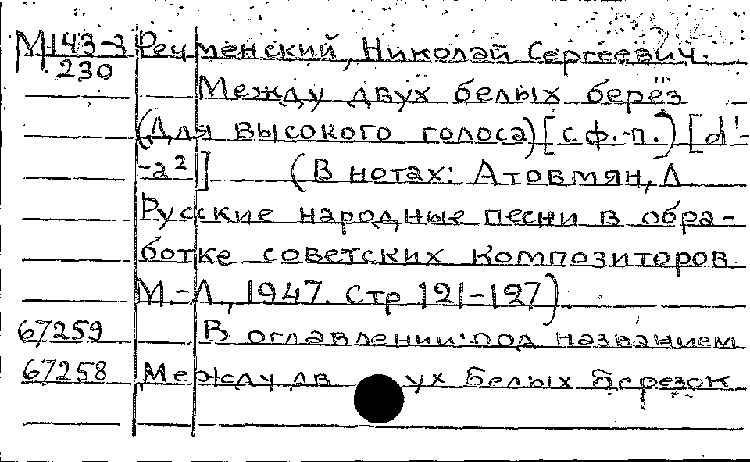 М143-3 Речменский, Николай Сергеевич.
230
Между двух белых берёз
(Для высокого голоса) [с ф.-п.) [d'-
-a²] (В нотах: Атовмян, Л
Русские народные песни в обра-
ботке советских композиторов
М.-Л., 1947. Стр 121-127).
67259 В оглавлении: под названием
67258 Между дв ух белых березок